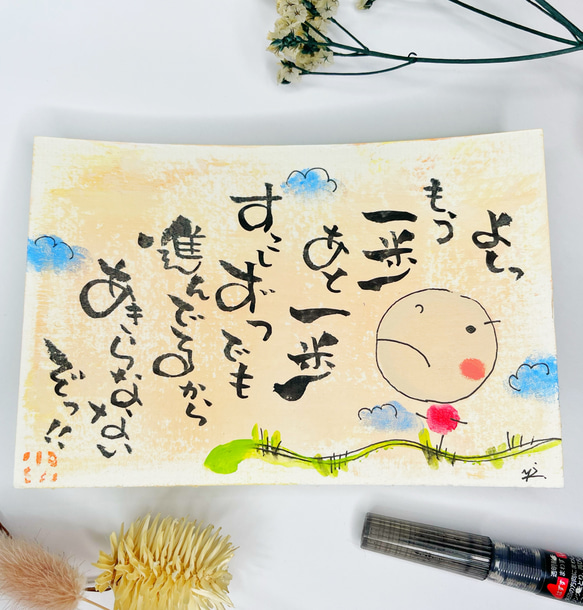 よしっ
もう
一歩
あと
一歩
すこし
ずつでも
進んでるから
あきらめない
ぞっ!!